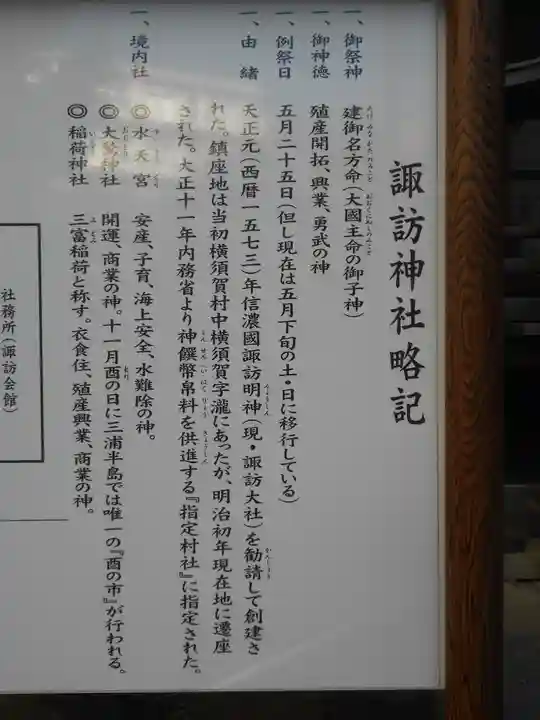 諏訪神社略記
一、御祭神　建御名方命(大國主命の御子神)
一、御神徳　殖産開拓、興業、勇武の神
一、例祭日　五月二十五日(但し現在は五月下旬の土・日に移行している)
一、由　緒　天正元(西暦一五七三)年信濃國諏訪明神(現・諏訪大社)を勧請して創建さ
れた。鎮座地は当初横須賀村中横須賀字瀧にあったが、明治初年現在地に遷座
された。大正十一年内務省より神饌幣帛料を供進する『指定村社』に指定された。
一、境内社　◎水天宮　安産、子育、海上安全、水難除の神。
◎大鷲神社　開運、商業の神。十一月酉の日に三浦半島では唯一の『酉の市』が行われる。
◎稲荷神社　三富稲荷と称す。衣食住、殖産興業、商業の神。
社務所(諏訪会館)